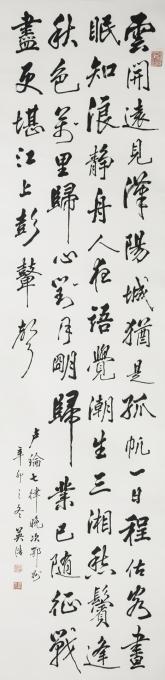 雲開遠見漢陽城猶是孤帆一日程估客晝
眠知浪靜舟人夜語覺潮生三湘愁鬢逢
秋色萬里歸心對月明歸業已隨征戰
盡更堪江上鼓鼙聲
卢瑜七律晚次鄂州
辛卯之冬吴